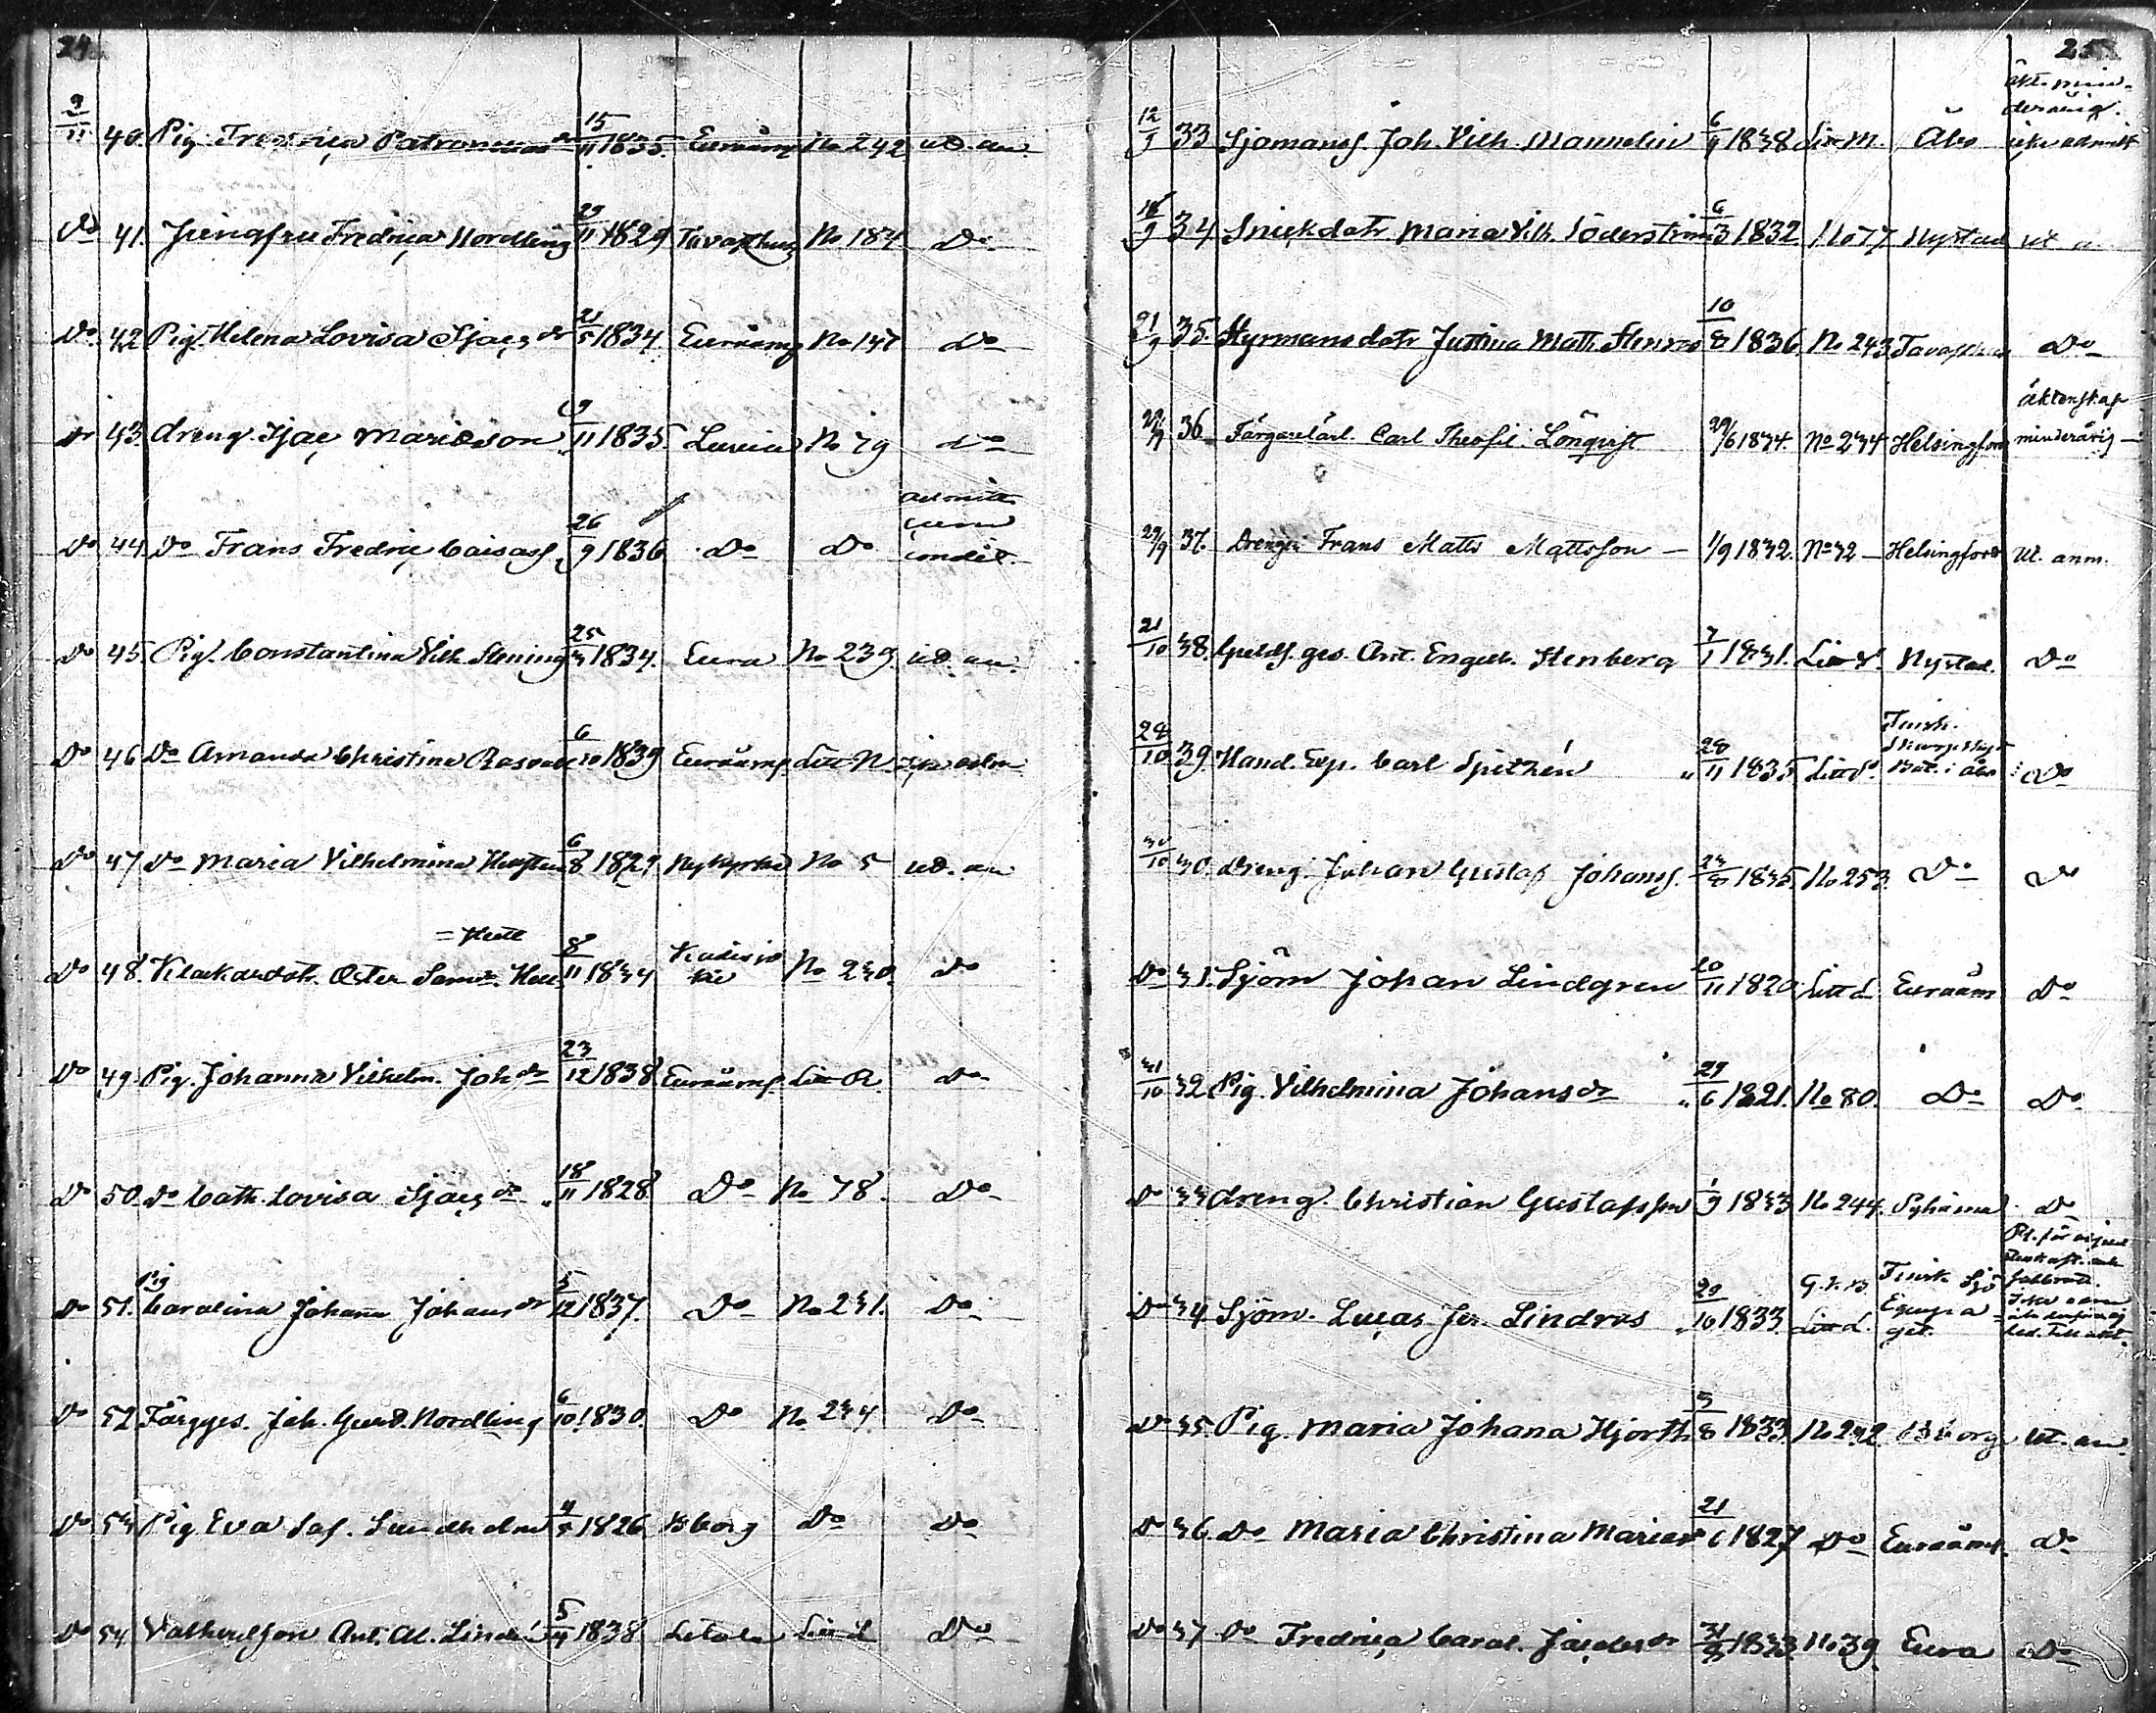 24
9/11 40. Pig. Fredrica 15/11 1835. Euraåmg No 242 ud. an.
Do 41. Jungfru Fredrica Nordling 29/11 1829 Tavasthus No 184 Do
Do 42 Pig. Helena Lovisa Isacs dr 21/5 1834. Euraåmg No 147 Do
Do 43. dreng. Isac Mariæson 11 1835. Luvia No 79 Do
admitt.
cum
Do 44. Do Frans Fredric Caisass. 26/9 1836 Do Do condit.
Do 45. Pig. Constantina Vilh. Stening 25/3 1834. Eura No 239. ud. an.
Do 46. Do Amanda Christina 6/10 1839 Euraåmg. Litt N. icke adm
Do 47. Do Maria Vilhelmina 6/8 1829 Nykyrko No 5 ud. an
= Hell
Do 48. Klockaredotr. Ester Hell 8/11 1834 No 230. Do
Do 49. Pig. Johanna Vilhelm. Joh. dr 23/12 1838 Euraåmg. Litt R. Do
Do 50. Do Cath. Lovisa Isacs dr 18/11 1828 Do No 78. Do
Pig
Do 51. Carolina Johana Johans dr 5/12 1837. Do No 231. Do
Do 52 Färgges. Joh. Gust. Nordling 6/10 1830. Do No 234. Do
Do 53. Pig. Eva Sof. Sundholm 4/5 1826 Bborg Do Do
Do 54 Ant. Al. Lindé 5/4 1838 Letala Litt L Do
25
äkt. min-
derårig.
12/9 33 Sjömanss. Joh. Vilh. Mannelin 6/4 1838 Litt M. Åbo icke admitt
18/9 34 Snickdotr Maria Vilh. Söderström 6/3 1832 No 77 Nystad ut a
21/9 35. Styrmansdotr Justina Math. Stenros 10/8 1836 No 243 Tavasthus Do
äktenskap
22/9 36. Färgarelärl. Carl Theofil Lönqvist 29/6 1834. No 234 Helsingfors minderårig —
29/9 37. Drengen Frans Matts Mattsson — 1/9 1832. No 32 — Helsingfors Ut. anm.
21/10 38. Guldsges. Ant. Engelb. Stenberg 7/1 1831. Litt Nystad. Do
Finsk.
Skarpskytt
28/10 39. Hand. Exp. Carl Spithén 28/11 1835 Litt Bat. i Åbo Do
30/10 30. Dreng. Johan Gustaf Johanss. 23/8 1835. No 253. Do Do
Do 31. Sjöm Johan Lindgren 20/11 1820 Litt d Euraåm Do
31/10 32. Pig. Vilhelmina Johans dr 29/6 1821. No 80. Do Do
Do 33 dreng. Christian Gustafsson 1/9 1833 No 244. Pyhäma Do
Do 34. Sjöm. Lucas Jer. Lindros 20/10 1833 Litt d. Finsk Sjö Equipaget.
Do 35. Pig. Maria Johana Hjorth 3/8 1833. No 232. Bborg ut. an
Do 36. Do Maria Christina Marias dr 21/6 1827 Do Euraåmg. Do
Do 37. Do Fredrica Carol. 31/3 1833 No 39. Eura Do